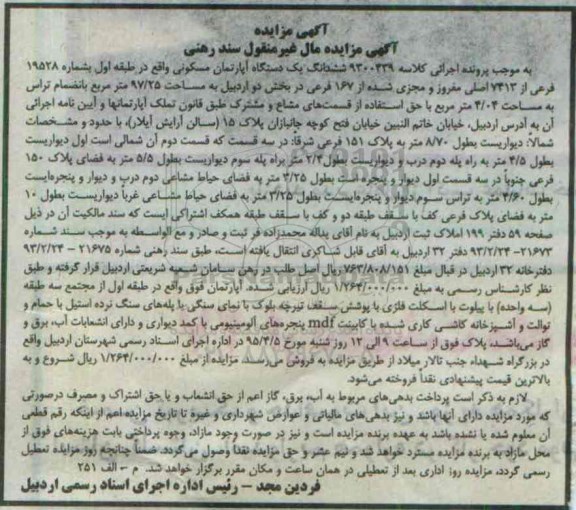 آگهی مزایده
آگهی مزایده مال غیرمنقول سند رهنی
به موجب پرونده اجرائی کلاسه ۹۳۰۰۴۳۹ ششدانگ یک دستگاه آپارتمان مسکونی واقع در طبقه اول بشماره ۱۹۵۲۸
فرعی از ۷۴۱۳ اصلی مفروز و مجزی شده از ۱۶۷ فرعی در بخش دو اردبیل به مساحت ۹۷/۲۵ متر مربع بانضمام تراس
به مساحت ۴/۰۴ متر مربع با حق استفاده از قسمت‌های مشاع و مشترک طبق قانون تملک آپارتمانها و آیین نامه اجرائی
آن به آدرس اردبیل، خیابان خاتم النبین خیابان فتح کوچه جانبازان پلاک ۱۵ (سالن آرایش آیلار)، با حدود و مشخصات
شمالاً: دیواریست بطول ۸/۷۰ متر به پلاک ۱۵۱ فرعی شرقاً: در سه قسمت که قسمت دوم آن شمالی است اول دیواریست
بطول ۴/۵ متر به راه پله دوم درب و دیواریست بطول ۲/۴ متر براه پله سوم دیواریست بطول ۵/۵ متر به فضای پلاک ۱۵۰
فرعی جنوباً در سه قسمت اول دیوار و پنجره‌ست بطول ۳/۲۵ متر به فضای حیاط مشاعی دوم درب و دیوار و پنجره‌ایست
بطول ۴/۶۰ متر به تراس سوم دیوار و پنجره‌ایست بطول ۳/۲۵ متر به فضای حیاط مشاعی غرباً دیواریست بطول ۱۰
متر به فضای پلاک فرعی کف با سقف طبقه دو و کف با سقف طبقه همکف اشتراکی است که سند مالکیت آن در ذیل
صفحه ۵۹ دفتر ۱۹۹ املاک ثبت اردبیل به نام آقای یداله محمدزاده فر ثبت و صادر و مع الواسطه به موجب سند شماره
۲۱۶۷۳– ۹۳/۲/۲۴ دفتر ۳۲ اردبیل به آقای قابل شناکری انتقال یافته است، طبق سند رهنی شماره ۲۱۶۷۵ – ۹۳/۲/۲۴
دفترخانه ۳۲ اردبیل در قبال مبلغ ۷۶۳/۸۰۸/۱۵۱ ریال اصل طلب در رهن بانک سامان شعبه شریعتی اردبیل قرار گرفته و طبق
نظر کارشناس رسمی به مبلغ ۱/۲۶۴/۰۰۰/۰۰۰ ریال ارزیابی شده. آپارتمان فوق واقع در طبقه اول از مجتمع سه طبقه
(سه واحده) با پیلوت با اسکلت فلزی با پوشش سقف تیرچه بلوک با نمای سنگی با پله‌های سنگ نرده استیل با حمام و
توالت و آشپزخانه کاشی کاری شده با کابینت mdf پنجره‌های آلومینیومی با کمد دیواری و دارای انشعابات آب، برق و
گاز می‌باشد، پلاک فوق از ساعت ۹ الی ۱۲ روز شنبه مورخ ۹۵/۴/۵ در اداره اجرای اسناد رسمی شهرستان اردبیل واقع
در بزرگراه شهداء جنب تالار میلاد از طریق مزایده به فروش می‌رسد. مزایده از مبلغ ۱/۲۶۴/۰۰۰/۰۰۰ ریال شروع و به
بالاترین قیمت پیشنهادی نقداً فروخته می‌شود.
لازم به ذکر است پرداخت بدهی‌های مربوط به آب، برق، گاز اعم از حق انشعاب و یا حق اشتراک و مصرف درصورتی
که مورد مزایده دارای آنها باشد و نیز بدهی‌های مالیاتی و عوارض شهرداری و غیره تا تاریخ مزایده اعم از اینکه رقم قطعی
آن معلوم شده یا نشده باشد به عهده برنده مزایده است و نیز در صورت وجود مازاد، وجوه پرداختی بابت هزینه‌های فوق از
محل مازاد به برنده مزایده مسترد خواهد شد و نیم عشر و حق مزایده نقداً وصول می‌گردد. ضمناً چنانچه روز مزایده تعطیل
رسمی گردد، مزایده روز اداری بعد از تعطیلی در همان ساعت و مکان مقرر برگزار خواهد شد. م – الف ۲۵۱
فردین مجد – رئیس اداره اجرای اسناد رسمی اردبیل